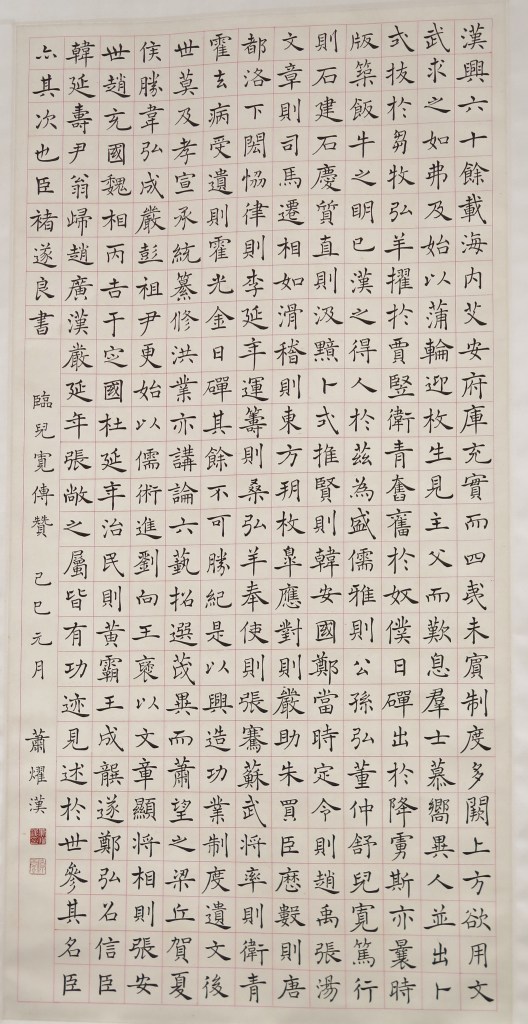 漢興六十餘載海内艾安府庫充實而四夷未賓制度多闕上方欲用文
武求之如弗及始以蒲輪迎枚生見主父而歎息羣士慕嚮異人並出卜
式拔於芻牧弘羊擢於賈豎衛青奮於奴僕日磾出於降虜斯亦曩時
版築飯牛之明已漢之得人於茲為盛儒雅則公孫弘董仲舒兒寬篤行
則石建石慶質直則汲黯卜式推賢則韓安國鄭當時定令則趙禹張湯
文章則司馬遷相如滑稽則東方朔枚皐應對則嚴助朱買臣曆數則唐
都洛下閎協律則李延年運籌則桑弘羊奉使則張騫蘇武將率則衛青
霍去病受遺則霍光金日磾其餘不可勝紀是以興造功業制度遺文後
世莫及孝宣承統纂修洪業亦講論六藝招選茂異而蕭望之梁丘賀夏
侯勝韋弘成嚴彭祖尹更始以儒術進劉向王褒以文章顯將相則張安
世趙充國魏相丙吉于定國杜延年治民則黃霸王成龔遂鄭弘召信臣
韓延壽尹翁歸趙廣漢嚴延年張敞之屬皆有功迹見述於世參其名臣
亦其次也臣褚遂良書 臨兒寬傳贊 己巳元月 蕭燿漢